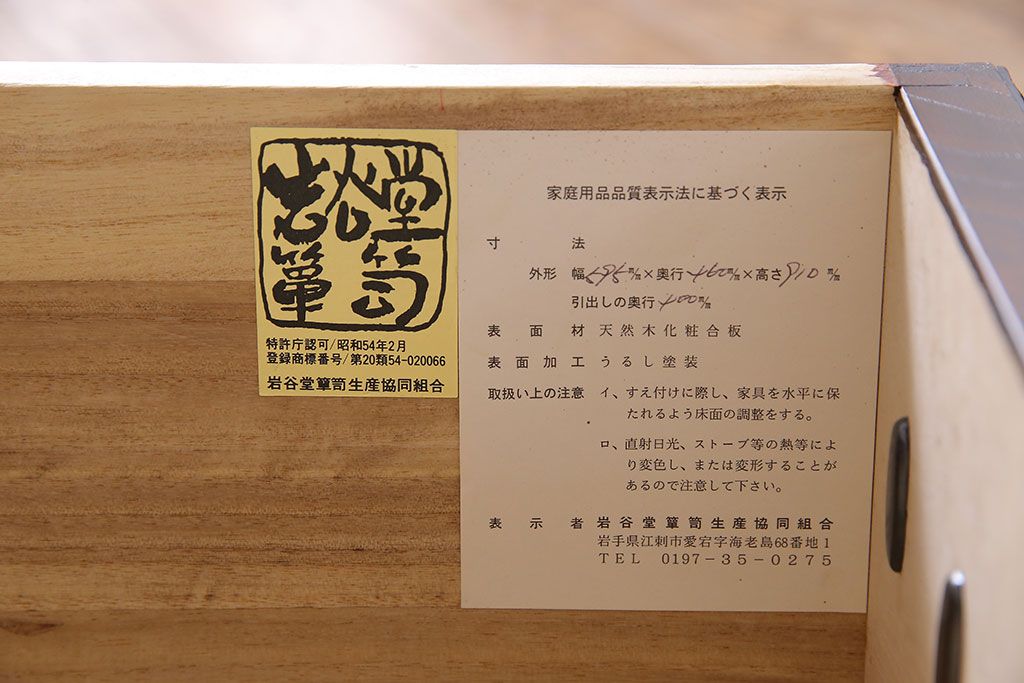 岩谷堂
簞笥
特許庁認可/昭和54年2月
登録商標番号/第20類54-020066
岩谷堂簞笥生産協同組合
家庭用品品質表示法に基づく表示
寸法
外形 幅 595 m/m×奥行 460 m/m×高さ 910 m/m
引出しの奥行 400 m/m
表面材 天然木化粧合板
表面加工 うるし塗装
取扱い上の注意 イ、すえ付けに際し、家具を水平に保
たれるよう床面の調整をする。
ロ、直射日光、ストーブ等の熱等によ
り変色し、または変形することが
あるので注意して下さい。
表示者 岩谷堂簞笥生産協同組合
岩手県江刺市愛宕字海老島68番地1
TEL 0197-35-0275